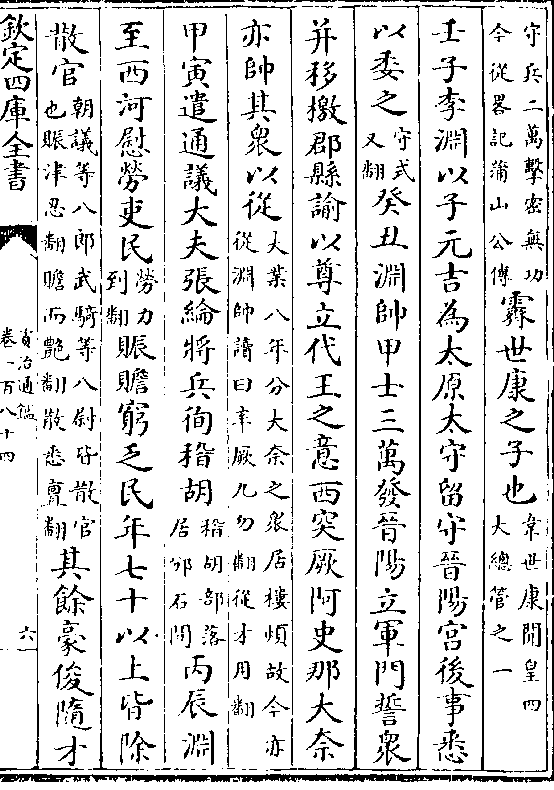 守兵二萬擊密無功今從畧記蒲山公傳霽世康之子也韋世康開皇四大總管之一
壬子李淵以子元吉為太原太守留守晉陽宮後事悉
以委之守式又翻癸丑淵帥甲士三萬發晉陽立軍門誓衆
并移檄郡縣諭以尊立代王之意西突厥阿史那大奈
亦帥其衆以從大業八年分大奈之衆居樓煩故今亦從淵帥讀曰率厥九勿翻從才用翻
甲寅遣通議大夫張綸將兵徇稽胡稽胡部落居邠石間丙辰淵
至西河慰勞吏民勞力到翻賑贍窮乏民年七十以上皆除
散官朝議等八郎武騎等八尉皆散官也賑津忍翻贍而艷翻散悉亶翻其餘豪俊隨才
欽定四庫全書
資治通鑑
卷一百八十四
六